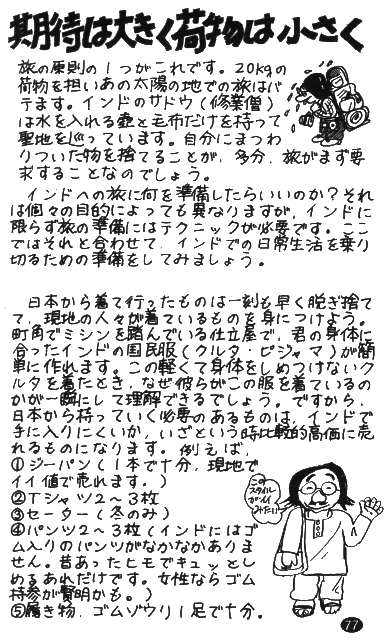 期待は大きく荷物は小さく
旅の原則の1つがこれです。20kgの
荷物を担いあの太陽の地での旅はバ
テます。インドのサドウ(修業僧)
は水を入れる壺と毛布だけを持って
聖地を巡っています。自分にまつわ
りついた物を捨てることが、多分、旅がまず要
求することなのでしょう。
インドへの旅に何を準備したらいいのか?それ
は個々の目的によっても異なりますが、インドに
限らず旅の準備にはテクニックが必要です。ここ
ではそれと合わせて、インドでの日常生活を乗り
切るための準備をしてみましょう。
日本から着て行ったものは一刻も早く脱ぎ捨て
て、現地の人々が着ているものを身につけよう。
町角でミシンを踏んでいる仕立屋で、君の身体に
合ったインドの国民服(クルタ・ピジャマ)が簡
単に作れます。この軽くて身体をしめつけないク
ルタを着たとき、なぜ彼らがこの服を着ているの
かが一瞬にして理解できるでしょう。ですから、
日本から持っていく必要のあるものは、インドで
手に入りにくいか、いざという時比較的高価に売
れるものになります。例えば、
①ジーパン(1本で十分、現地で
イイ値で売れます。)
②Tシャツ2〜3枚
③セーター(冬のみ)
④パンツ2〜3枚(インドにはゴ
ム入りのパンツがなかなかありま
せん。昔あったヒモでキュッとし
めるあれだけです。女性ならゴム
持参が賢明かも。)
⑤履き物、ゴムゾウリ1足で十分。
この
スタイル
がイイ
みたい
77